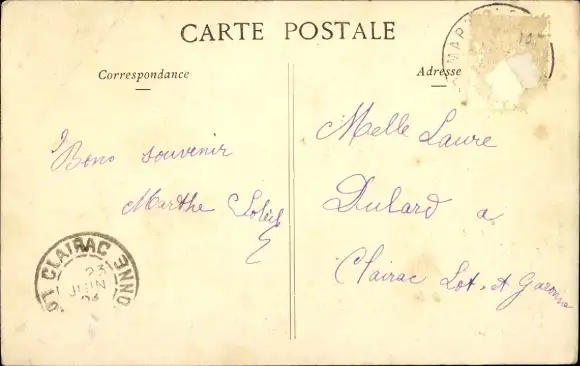 CARTE POSTALE
Correspondance
Adresse
MAR
Bons souvenir
Marthe
Melle Laure
Dulard a
Clairac Lot-et Garonne
CLAIRAC
23
JUIN